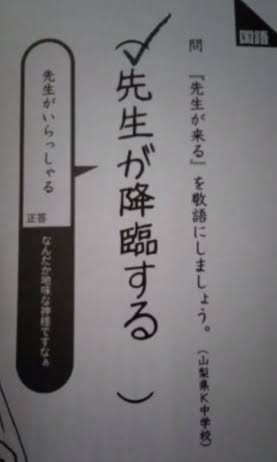 国語
問 『先生が来る』を敬語にしましょう。(山梨県K中学校)
(先生が降臨する)
先生がいらっしゃる
正答
なんだか地味な神様ですなぁ